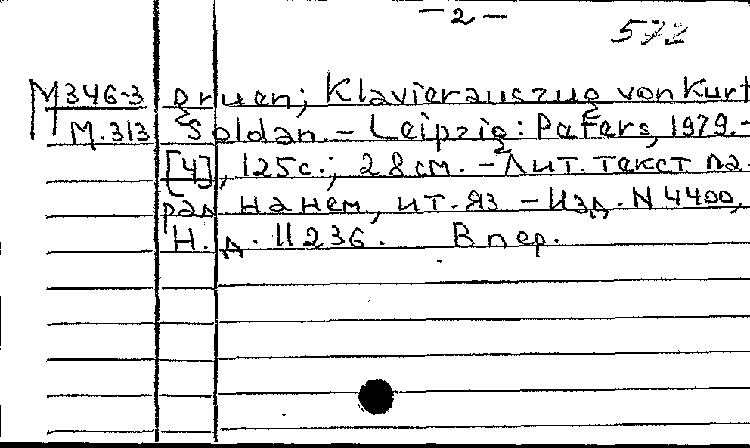 – 2 –
572
М346-3 geruen; Klavierauszug von Kurt
М.313 Soldan. – Leipzig: Peters, 1979. –
[4], 125с.; 28см. – Лит. текст па-
рал. на нем., ит. яз – Изд. N 4400,
Н. д. 11236. В пер.